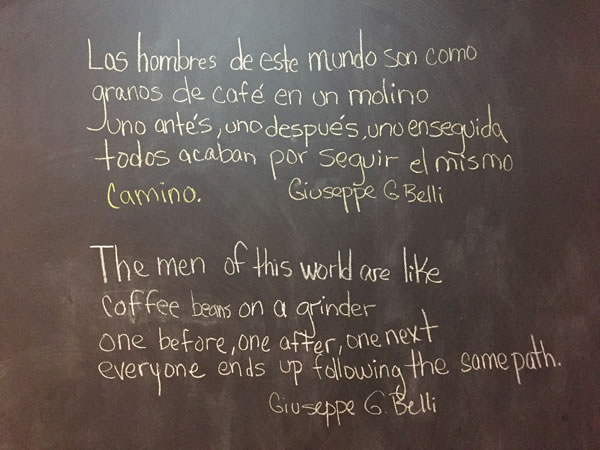 Los hombres de este mundo son como
granos de café en un molino
uno antés, uno después, uno enseguida
todos acaban por seguir el mismo
camino. Giuseppe G Belli
The men of this world are like
coffee beans on a grinder
one before, one after, one next
everyone ends up following the same path.
Giuseppe G. Belli